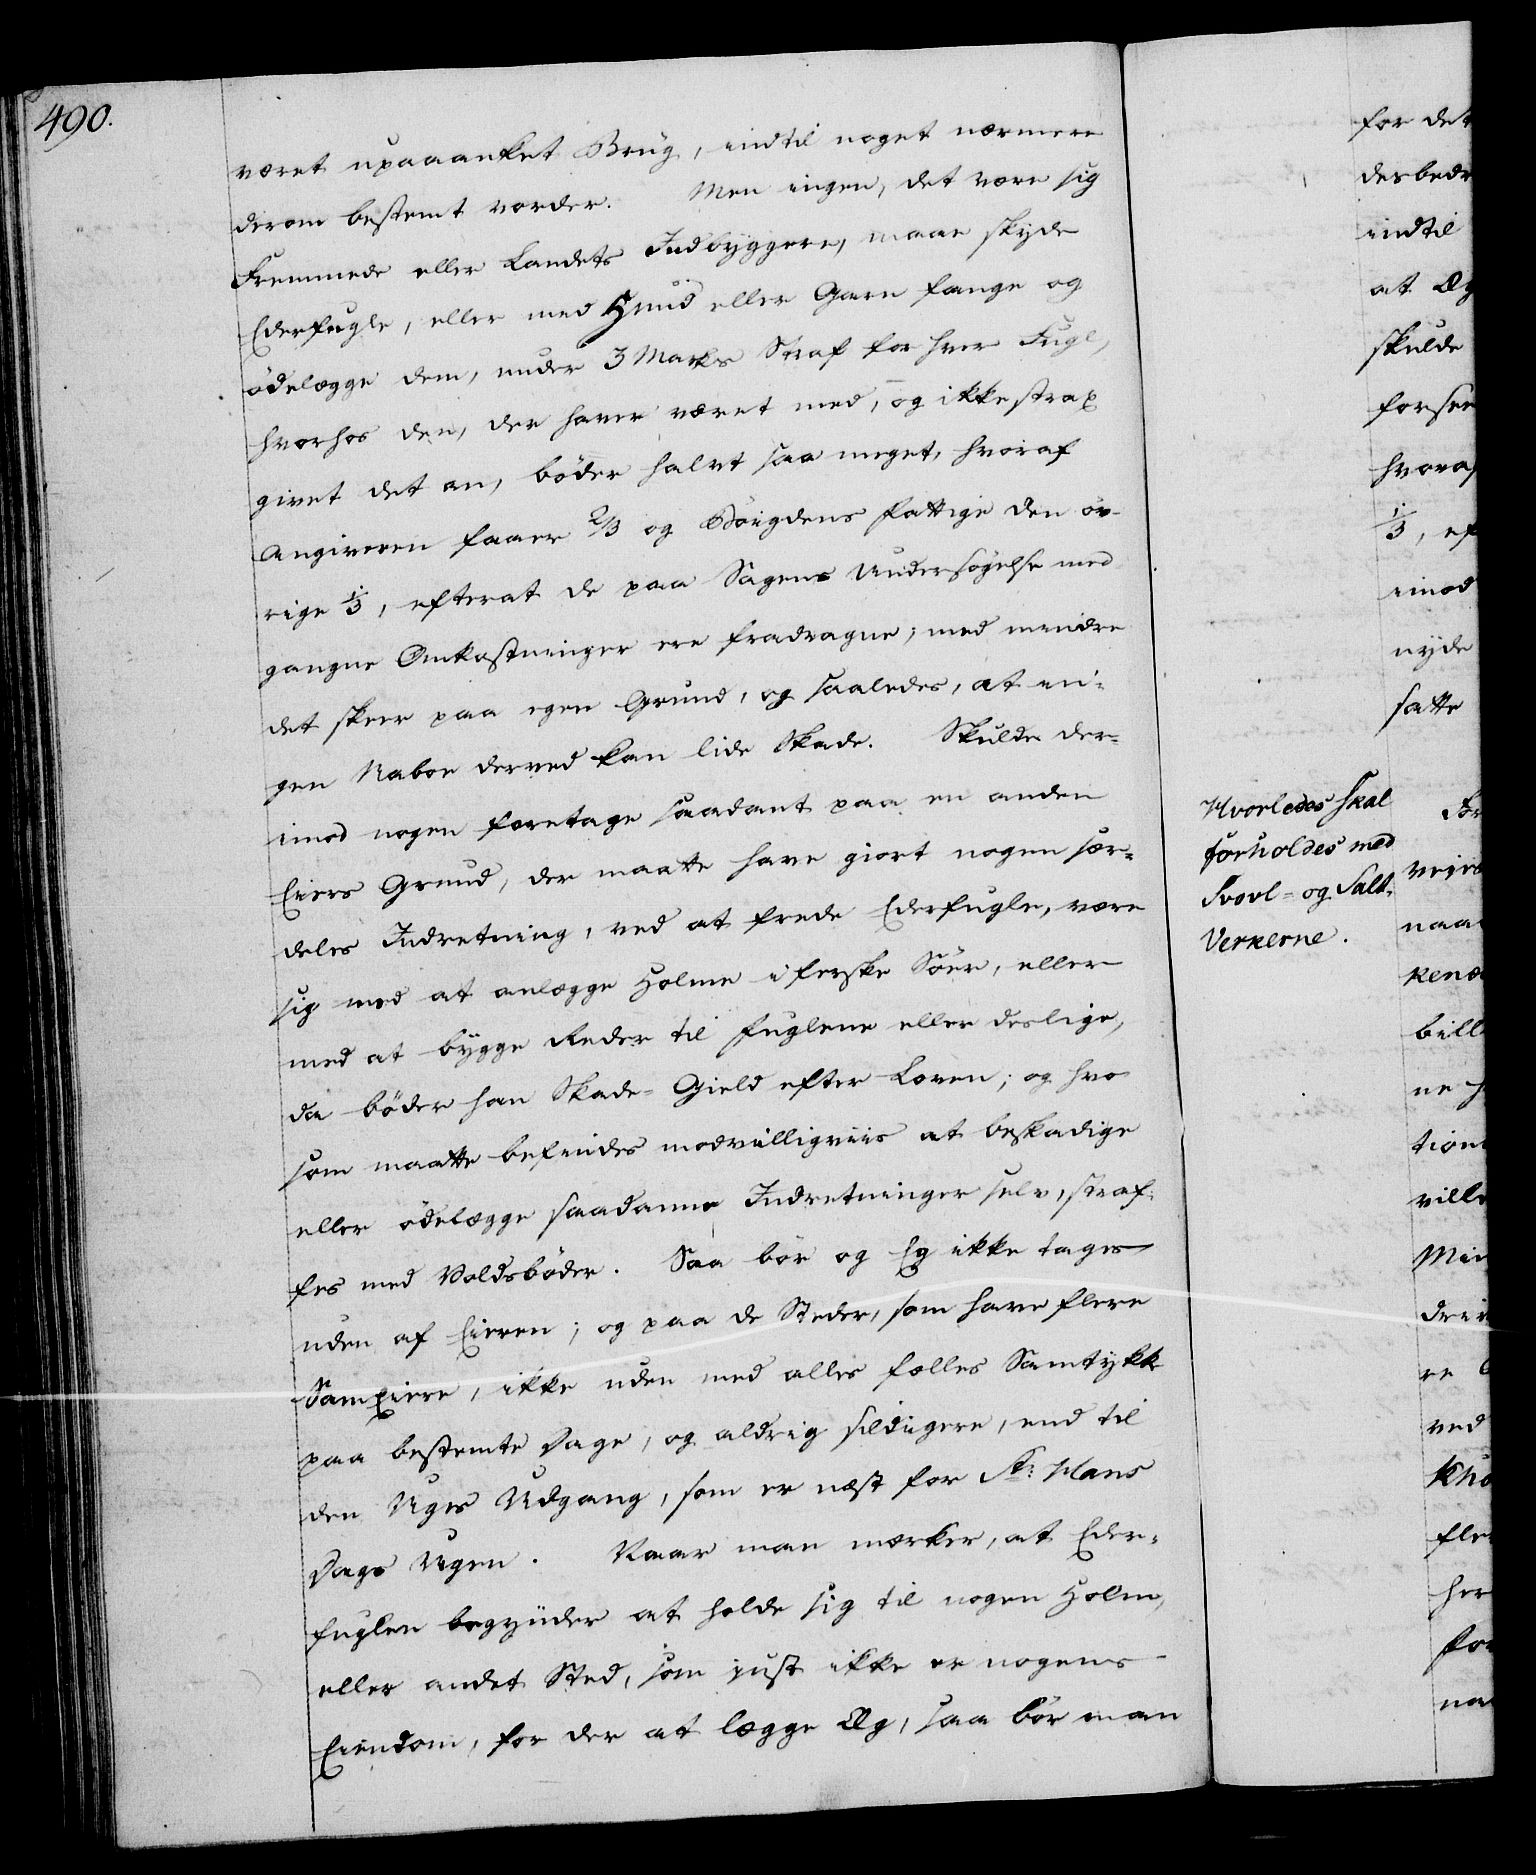 490.
været upaaanket Brug, indtil noget nærmere
derom bestemt vorder. Men ingen, det være sig
Fremmede eller Landets Indbyggere, maae skyde
Ederfugle, eller med Hund eller Garn fange og
ödelægge dem, under 3 Marks Straf for hver Fugl,
hvorhos den, der haver været med, og ikke strax
givet det an, böder halvt saa meget, hvoraf
Angiveren faaer 2/3 og Böigdens fattige den öv-
rige 1/3, efterat de paa Sagens Undersögelse med
gangne Omkostninger ere fradragne; med mindre
det skeer paa egen Grund, og saaledes, at in-
gen Naboe derved kan lide Skade. Skulde der-
imod nogen foretage saadant paa en anden
Eiers Grund, der maatte have giort nogen sær-
deles Indretning, ved at frede Ederfugle, være
sig med at anlægge Holme i ferske Söer, eller
med at bygge Reder til Fuglene eller deslige,
da böder han Skade-Gield efter Loven; og hvo
som maatte befindes modvilligviis at beskadige
eller ödelægge saadanne Indretninger selv, straf-
fes med Voldsböder. Saa bör og Eg ikke tages
uden af Eieren; og paa de Steder, som have flere
Sameiere, ikke uden med alles fælles Samtykke
paa bestemte Dage, og aldrig sildigere, end til
den Uges Udgang, som er næst for St: Hans
Dags Ugen. Naar man mærker, at Eder-
fuglen begynder at holde sig til nogen Holm,
eller andet Sted, som just ikke er nogens
Eiendom, for der at lægge Æg, saa bör man
for det
desbedr
indtil
at Æg
skulde
forsee
hvoraf
1/3, ef
imod
nyde
satte
Hvorledes skal
forholdes med
Svovl- og Salt-
Verkerne.
For
veies
naa
kenæ
bill
ne h
tion
ville
Min
dri
re
ved
Khö
fle
her
for
na